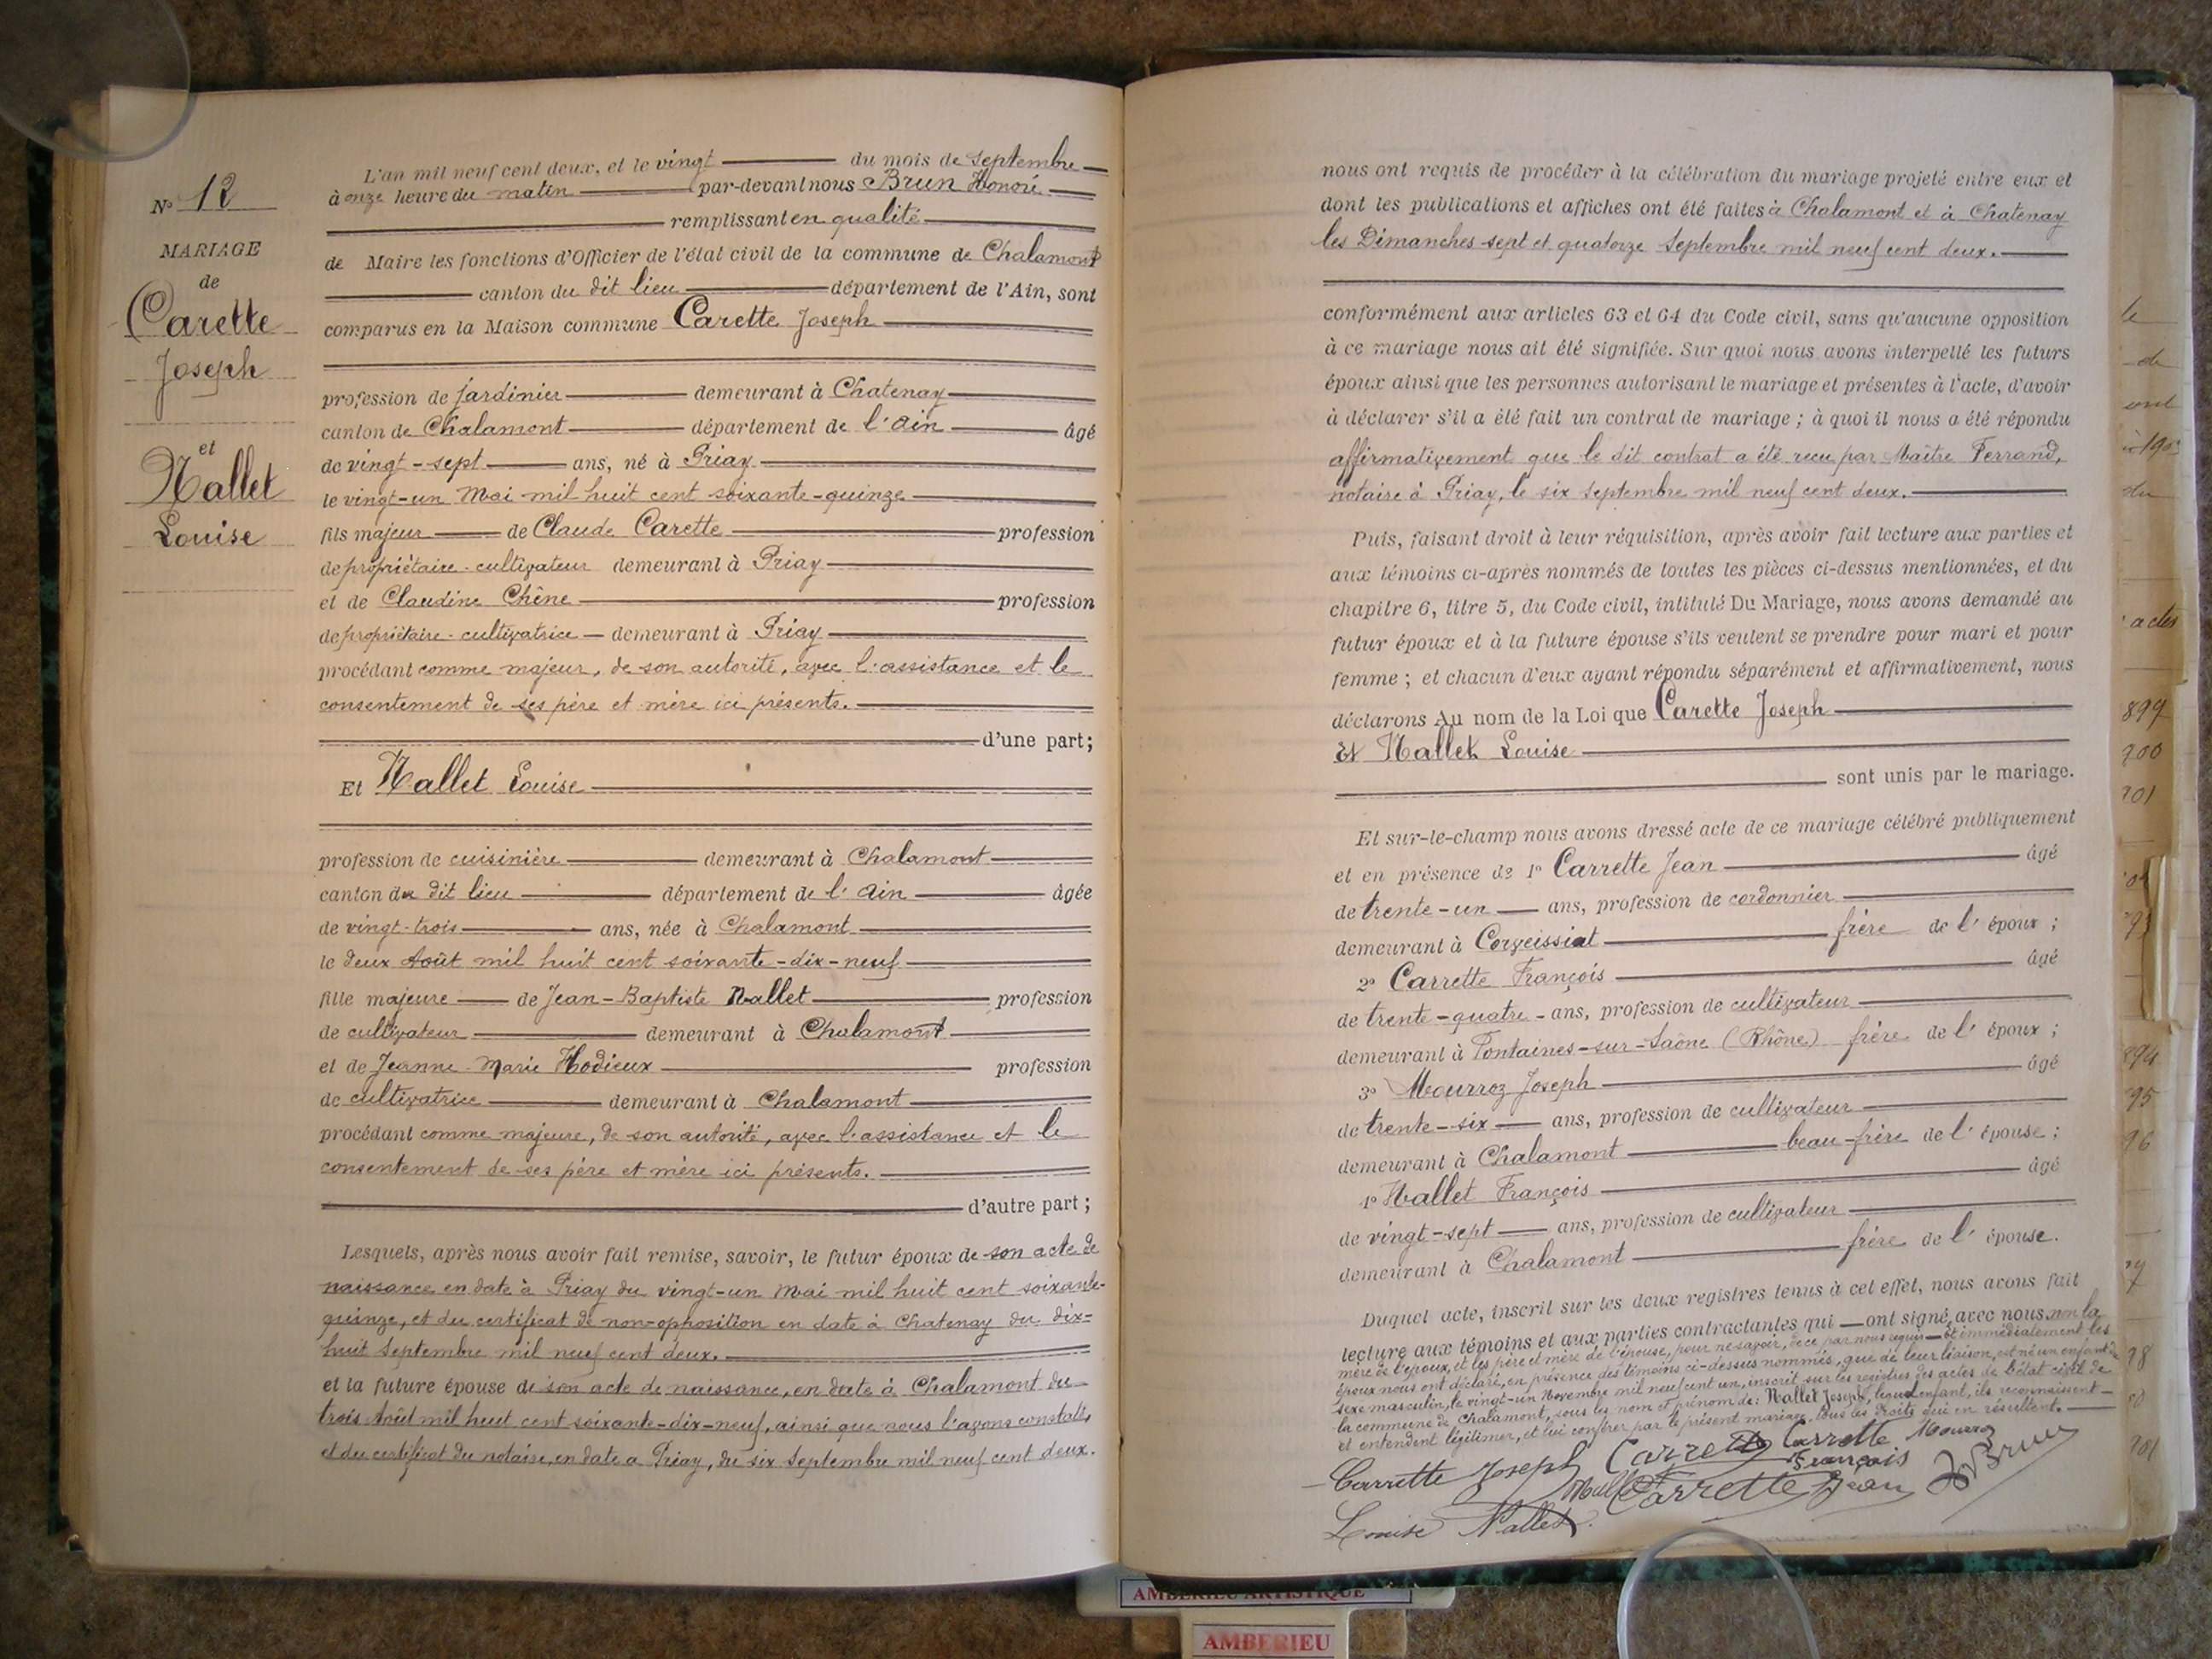 N° 12
MARIAGE
de
Carette
Joseph
et
Nallet
Louise
L'an mil neuf cent deux, et le vingt du mois de Septembre
à onze heure du matin par-devant nous Brun Honoré
remplissant en qualité
de Maire les fonctions d'Officier de l'état civil de la commune de Chalamont
canton du dit lieu département de l'Ain, sont
comparus en la Maison commune Carette Joseph
profession de jardinier demeurant à Chatenay
canton de Chalamont département de l'Ain âgé
de vingt-sept ans, né à Priay
le vingt-un Mai mil huit cent soixante-quinze
fils majeur de Claude Carette profession
de propriétaire-cultivateur demeurant à Priay
et de Claudine Chêne profession
de propriétaire-cultivatrice demeurant à Priay
procédant comme majeur, de son autorité, avec l'assistance et le
consentement de ses père et mère ici présents.
d'une part;
Et Nallet Louise
profession de cuisinière demeurant à Chalamont
canton du dit lieu département de l'Ain âgée
de vingt-trois ans, née à Chalamont
le deux Août mil huit cent soixante-dix-neuf
fille majeure de Jean-Baptiste Nallet profession
de cultivateur demeurant à Chalamont
et de Jeanne-Marie Hodieux profession
de cultivatrice demeurant à Chalamont
procédant comme majeure, de son autorité, avec l'assistance et le
consentement de ses père et mère ici présents.
d'autre part;
Lesquels, après nous avoir fait remise, savoir, le futur époux de son acte de
naissance en date à Priay du vingt-un Mai mil huit cent soixante-
quinze, et du certificat de non-opposition en date à Chatenay du dix-
huit Septembre mil neuf cent deux.
et la future épouse de son acte de naissance, en date à Chalamont du
trois Août mil huit cent soixante-dix-neuf, ainsi que nous l'avons constaté,
et du certificat du notaire, en date à Priay, du six Septembre mil neuf cent deux.
nous ont requis de procéder à la célébration du mariage projeté entre eux et
dont les publications et affiches ont été faites à Chalamont et à Chatenay
les Dimanches sept et quatorze Septembre mil neuf cent deux.
conformément aux articles 63 et 64 du Code civil, sans qu'aucune opposition
à ce mariage nous ait été signifiée. Sur quoi nous avons interpellé les futurs
époux ainsi que les personnes autorisant le mariage et présentes à l'acte, d'avoir
à déclarer s'il a été fait un contrat de mariage; à quoi il nous a été répondu
affirmativement que le dit contrat a été reçu par Maître Ferrand,
notaire à Priay, le six Septembre mil neuf cent deux.
Puis, faisant droit à leur réquisition, après avoir fait lecture aux parties et
aux témoins ci-après nommés de toutes les pièces ci-dessus mentionnées, et du
chapitre 6, titre 5, du Code civil, intitulé Du Mariage, nous avons demandé au
futur époux et à la future épouse s'ils veulent se prendre pour mari et pour
femme; et chacun d'eux ayant répondu séparément et affirmativement, nous
déclarons Au nom de la Loi que Carette Joseph
Et Nallet Louise
sont unis par le mariage.
Et sur-le-champ nous avons dressé acte de ce mariage célébré publiquement
et en présence de 1° Carrette Jean âgé
de trente-un ans, profession de cordonnier
demeurant à Corveissiat frère de l'époux;
2° Carrette François âgé
de trente-quatre ans, profession de cultivateur
demeurant à Fontaines-sur-Saône (Rhône) frère de l'époux;
3° Mourroz Joseph âgé
de trente-six ans, profession de cultivateur
demeurant à Chalamont beau-frère de l'épouse;
4° Nallet François âgé
de vingt-sept ans, profession de cultivateur
demeurant à Chalamont frère de l'épouse.
Duquel acte, inscrit sur les deux registres tenus à cet effet, nous avons fait
lecture aux témoins et aux parties contractantes qui ont signé avec nous, non la
mère de l'époux, et les père et mère de l'épouse, pour ne savoir, de ce par nous requis Et immédiatement les
époux nous ont déclaré, en présence des témoins ci-dessus nommés, que de leur liaison, est né un enfant du
sexe masculin, le vingt-un Novembre mil neuf cent un, inscrit sur les registres des actes de l'état civil de
la commune de Chalamont, sous les nom et prénom de: Nallet Joseph, lequel enfant, ils reconnaissent
et entendent légitimer, et lui conférer par le présent mariage, tous les droits qui en résultent.
Carrette Joseph Carrette Carrette François Mourroz
Nallet Carrette Jean Brun
Louise Nallet
le
de
actes
899
900
901
894
95
96
AMBERIEU ARTISTIQUE
AMBERIEU